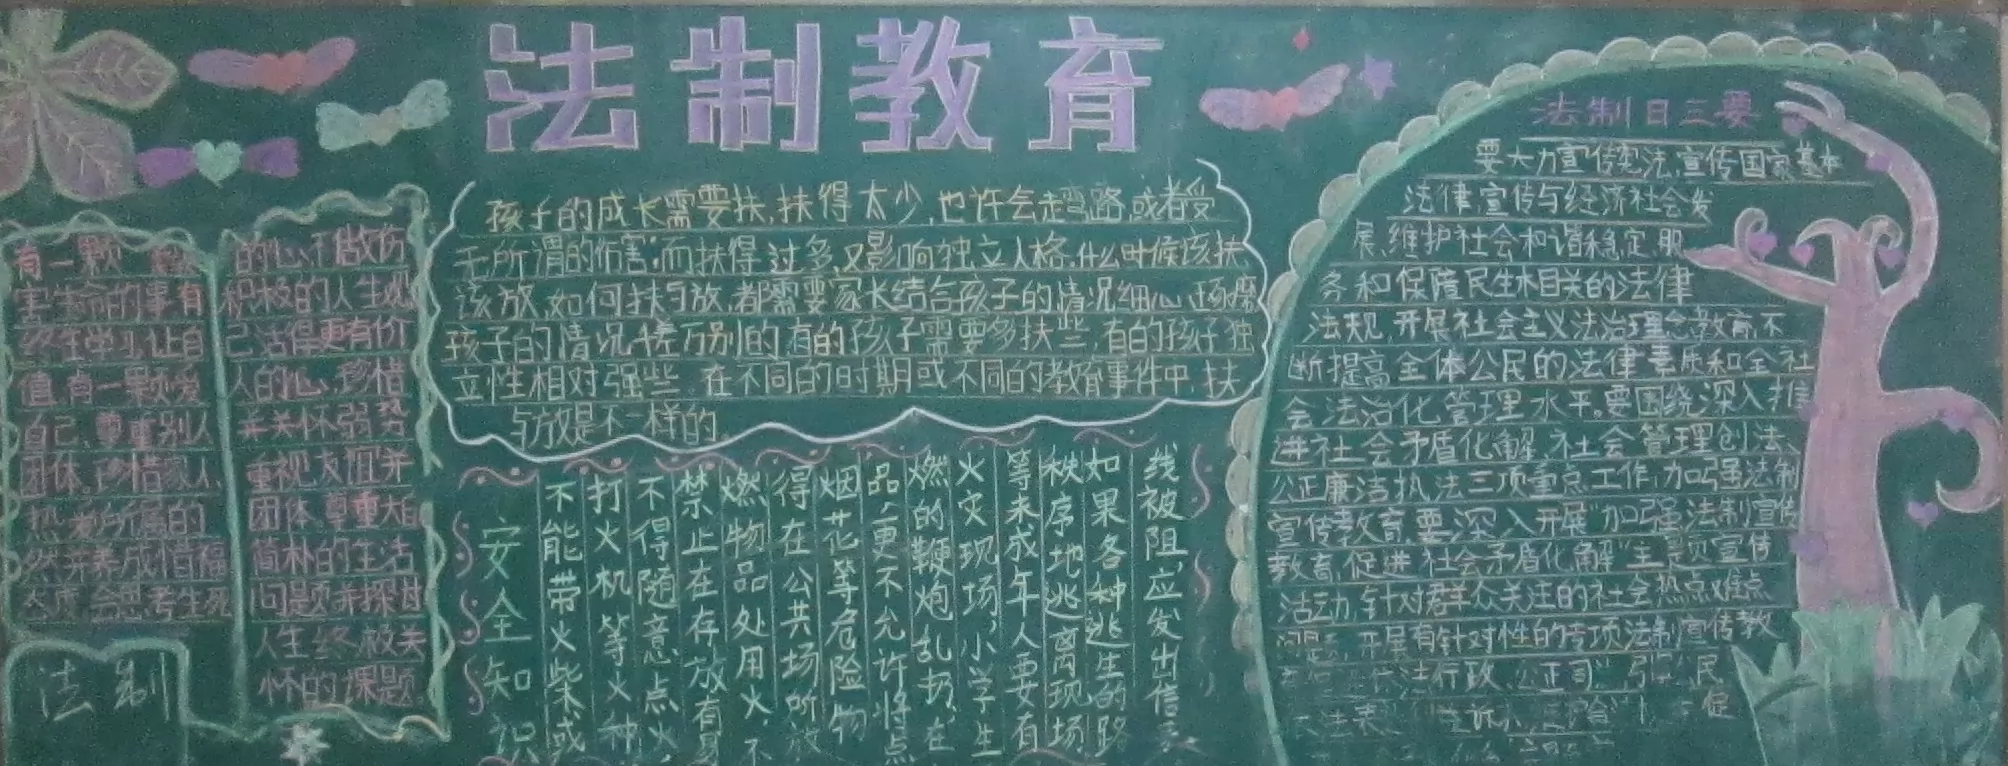 法制教育
有一颗
害生命的事有
终生学习,让自
值,有一颗爱
自己、尊重别人
团体。珍惜家人
热爱所属的
然并养成惜福
态度,会思考生死
的心,不做伤
积极的人生观
己活得更有价
人的心,珍惜
并关怀弱势
重视友谊并
团体、尊重大自
简朴的生活
问题,并探讨
人生终极关
怀的课题
法制
孩子的成长需要扶,扶得太少,也许会走弯路,或者受
无所谓的伤害;而扶得过多,又影响独立人格,什么时候该扶
该放,如何扶与放,都需要家长结合孩子的情况细心
孩子的情况千差万别的,有的孩子需要多扶些,有的孩子独
立性相对强些,在不同的时期或不同的教育事件中,扶
与放是不一样的
安全知识
不能带火柴或
打火机等火种
不得随意点火
禁止在存放有易
燃物品处用火,不
得在公共场所放
烟花等危险物
品,更不允许将点
燃的鞭炮乱扔,在
火灾现场,小学生
等未成年人要有
秩序地逃离现场
如果各种逃生的路
线被阻,应发出信
法制日三要
要大力宣传宪法,宣传国家基本
法律,宣传与经济社会发
展,维护社会和谐稳定,服
务和保障民生相关的法律
法规,开展社会主义法治理念教育,不
断提高全体公民的法律素质和全社
会法治化管理水平。要围绕深入推
进社会矛盾化解、社会管理创法、
公正廉洁执法三项重点工作,加强法制
宣传教育,要深入开展"加强法制宣传
教育,促进社会矛盾化解"主题宣传
活动,针对群众关注的社会热点难点
问题,开展有针对性的专项法制宣传教
法行政、公正司 引 公民